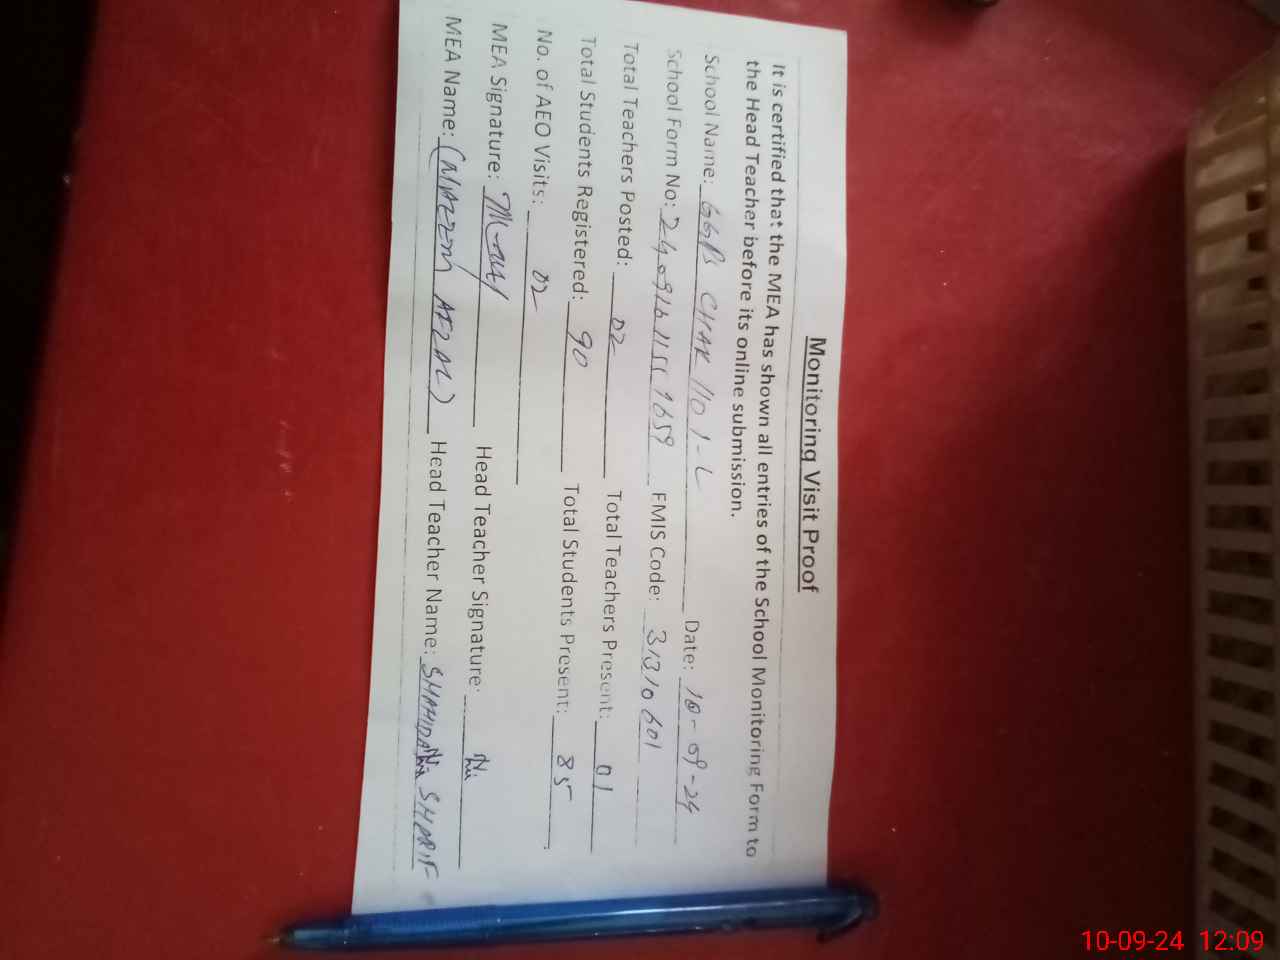 Monitoring Visit Proof
It is certified that the MEA has shown all entries of the School Monitoring Form to
the Head Teacher before its online submission.
School Name: CHAK 110 1-L Date: 10-09-24
School Form No: FMIS Code: 31310601
Total Teachers Posted: 02 Total Teachers Present: 01
Total Students Registered: 90 Total Students Present: 85
No. of AEO Visits: 02
MEA Signature: Head Teacher Signature:
MEA Name: AFZAL) Head Teacher Name: SHARIF
10-09-24 12:09